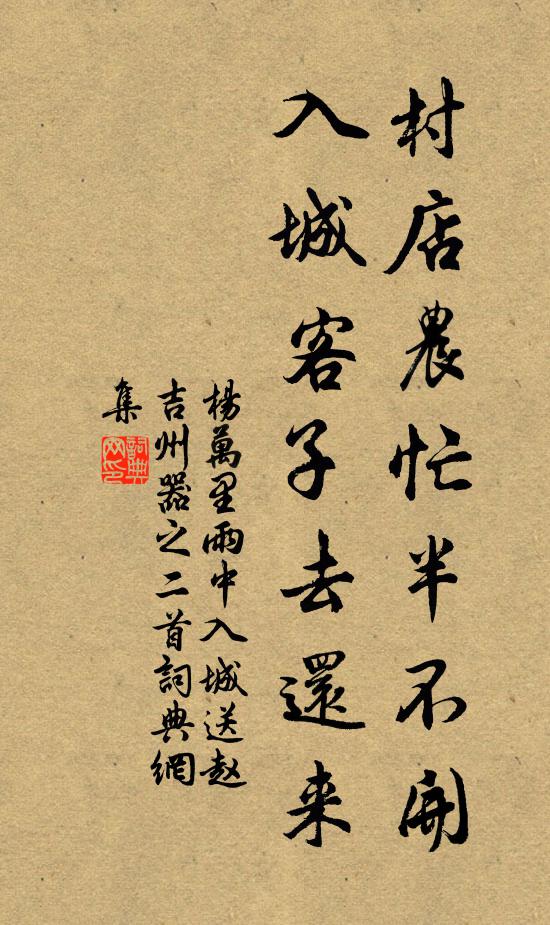 村店農忙半不開
入城客子去還来
楊萬里雨中入城送赵
吉州器之二首詞典網
集
詞典网印